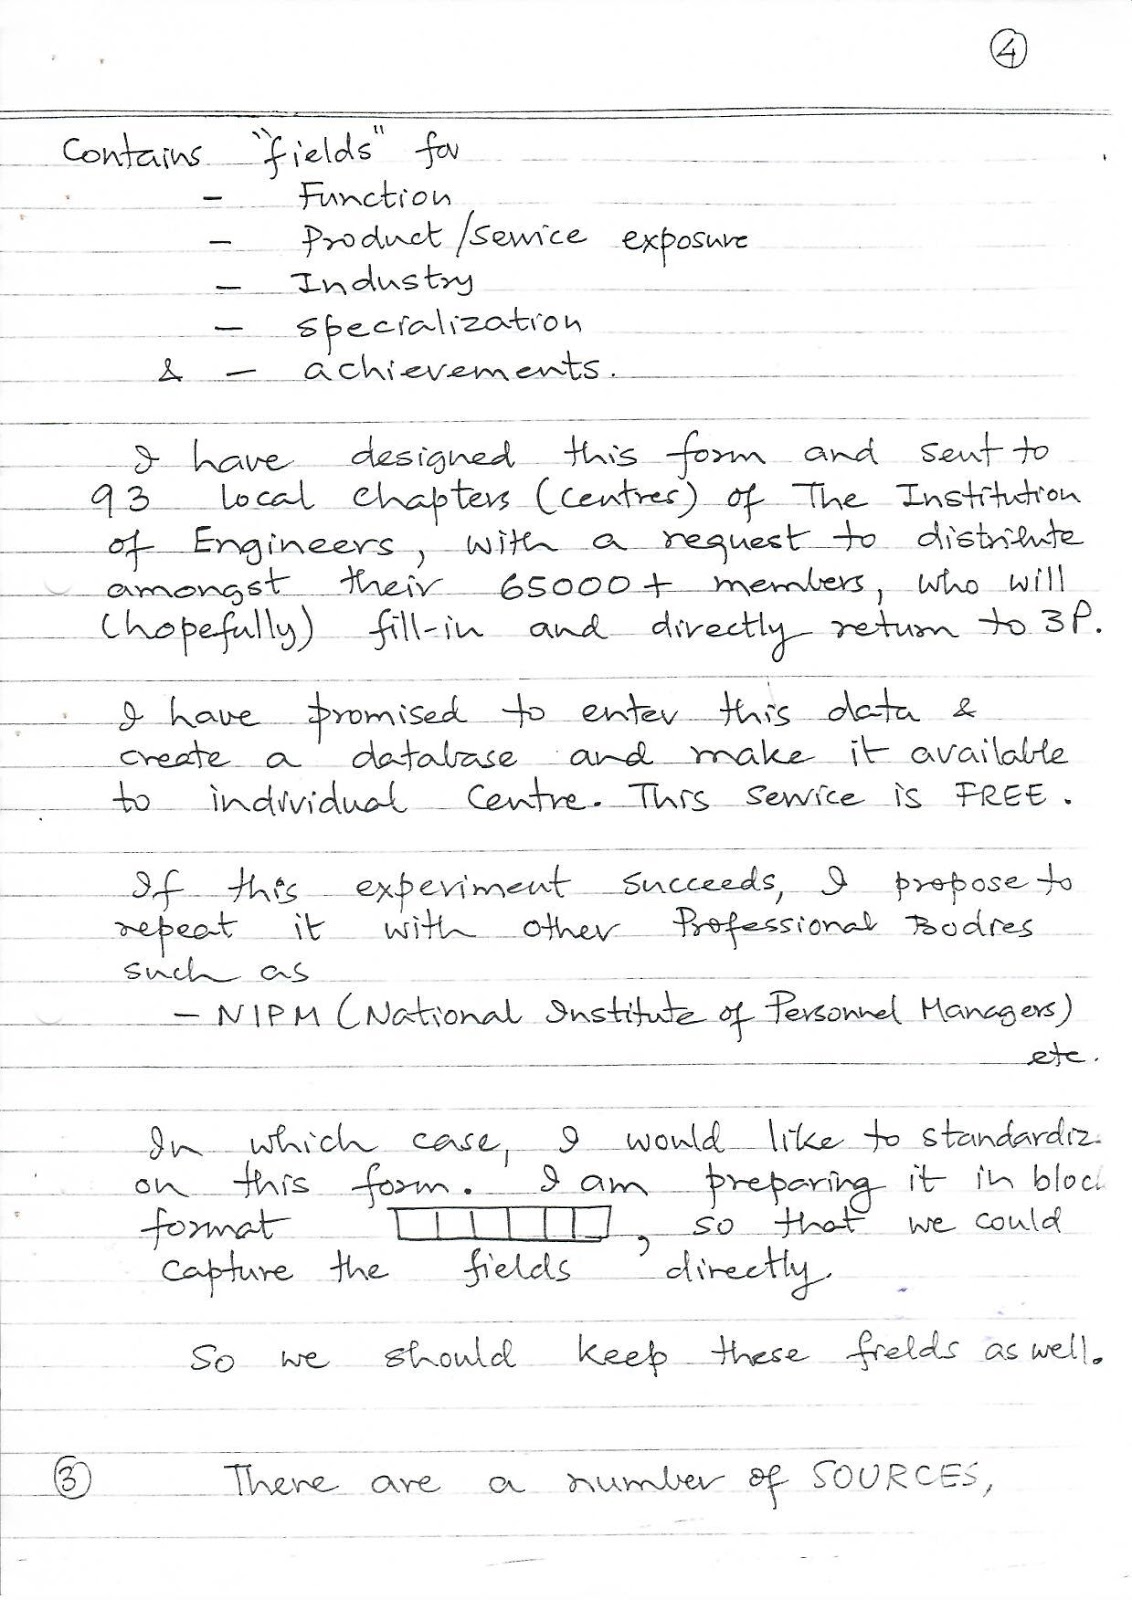 4
Contains "fields" for
- Function
- Product/Service exposure
- Industry
- specialization
& - achievements.
I have designed this form and sent to
93 local chapters (centres) of The Institution
of Engineers, with a request to distribute
amongst their 65000+ members, who will
(hopefully) fill-in and directly return to 3P.
I have promised to enter this data &
create a database and make it available
to individual Centre. This Service is FREE.
If this experiment succeeds, I propose to
repeat it with other Professional Bodies
such as
- NIPM (National Institute of Personnel Managers)
etc.
In which case, I would like to standardiz
on this form. I am preparing it in bloc
format , so that we could
capture the fields directly.
So we should keep these fields as well.
3 There are a number of SOURCES,